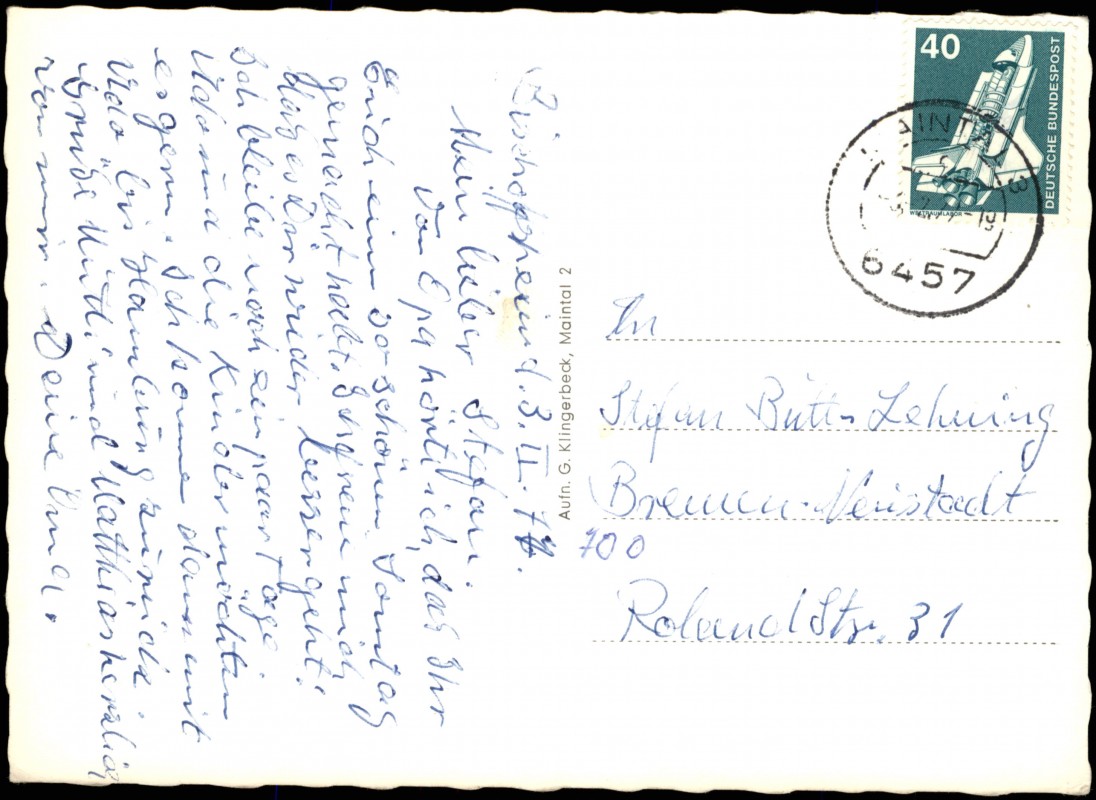 Bischofsheim d. 3. II. 78.
Mein lieber Stefan.
Von Opa hört' ich, das Ihr
Euch ein so schönen Sontag
gemacht habt. Ich freue mich
das es Dir wieder besser geht.
Ich bleibe noch ein paar Tage
Udo und die Kinder möchten
es gern. Ich komme dann mit
Udo bis Hamburg zurück.
Grüße Mutti und Matthias herzlich
von mir. Deine Oma.
Aufn. G. Klingerbeck, Maintal 2
40
DEUTSCHE BUNDESPOST
WELTRAUMLABOR
MAINTAL 3
6457
An
Stefan Lehning
Bremen-Neustadt
700
Roland Str. 31